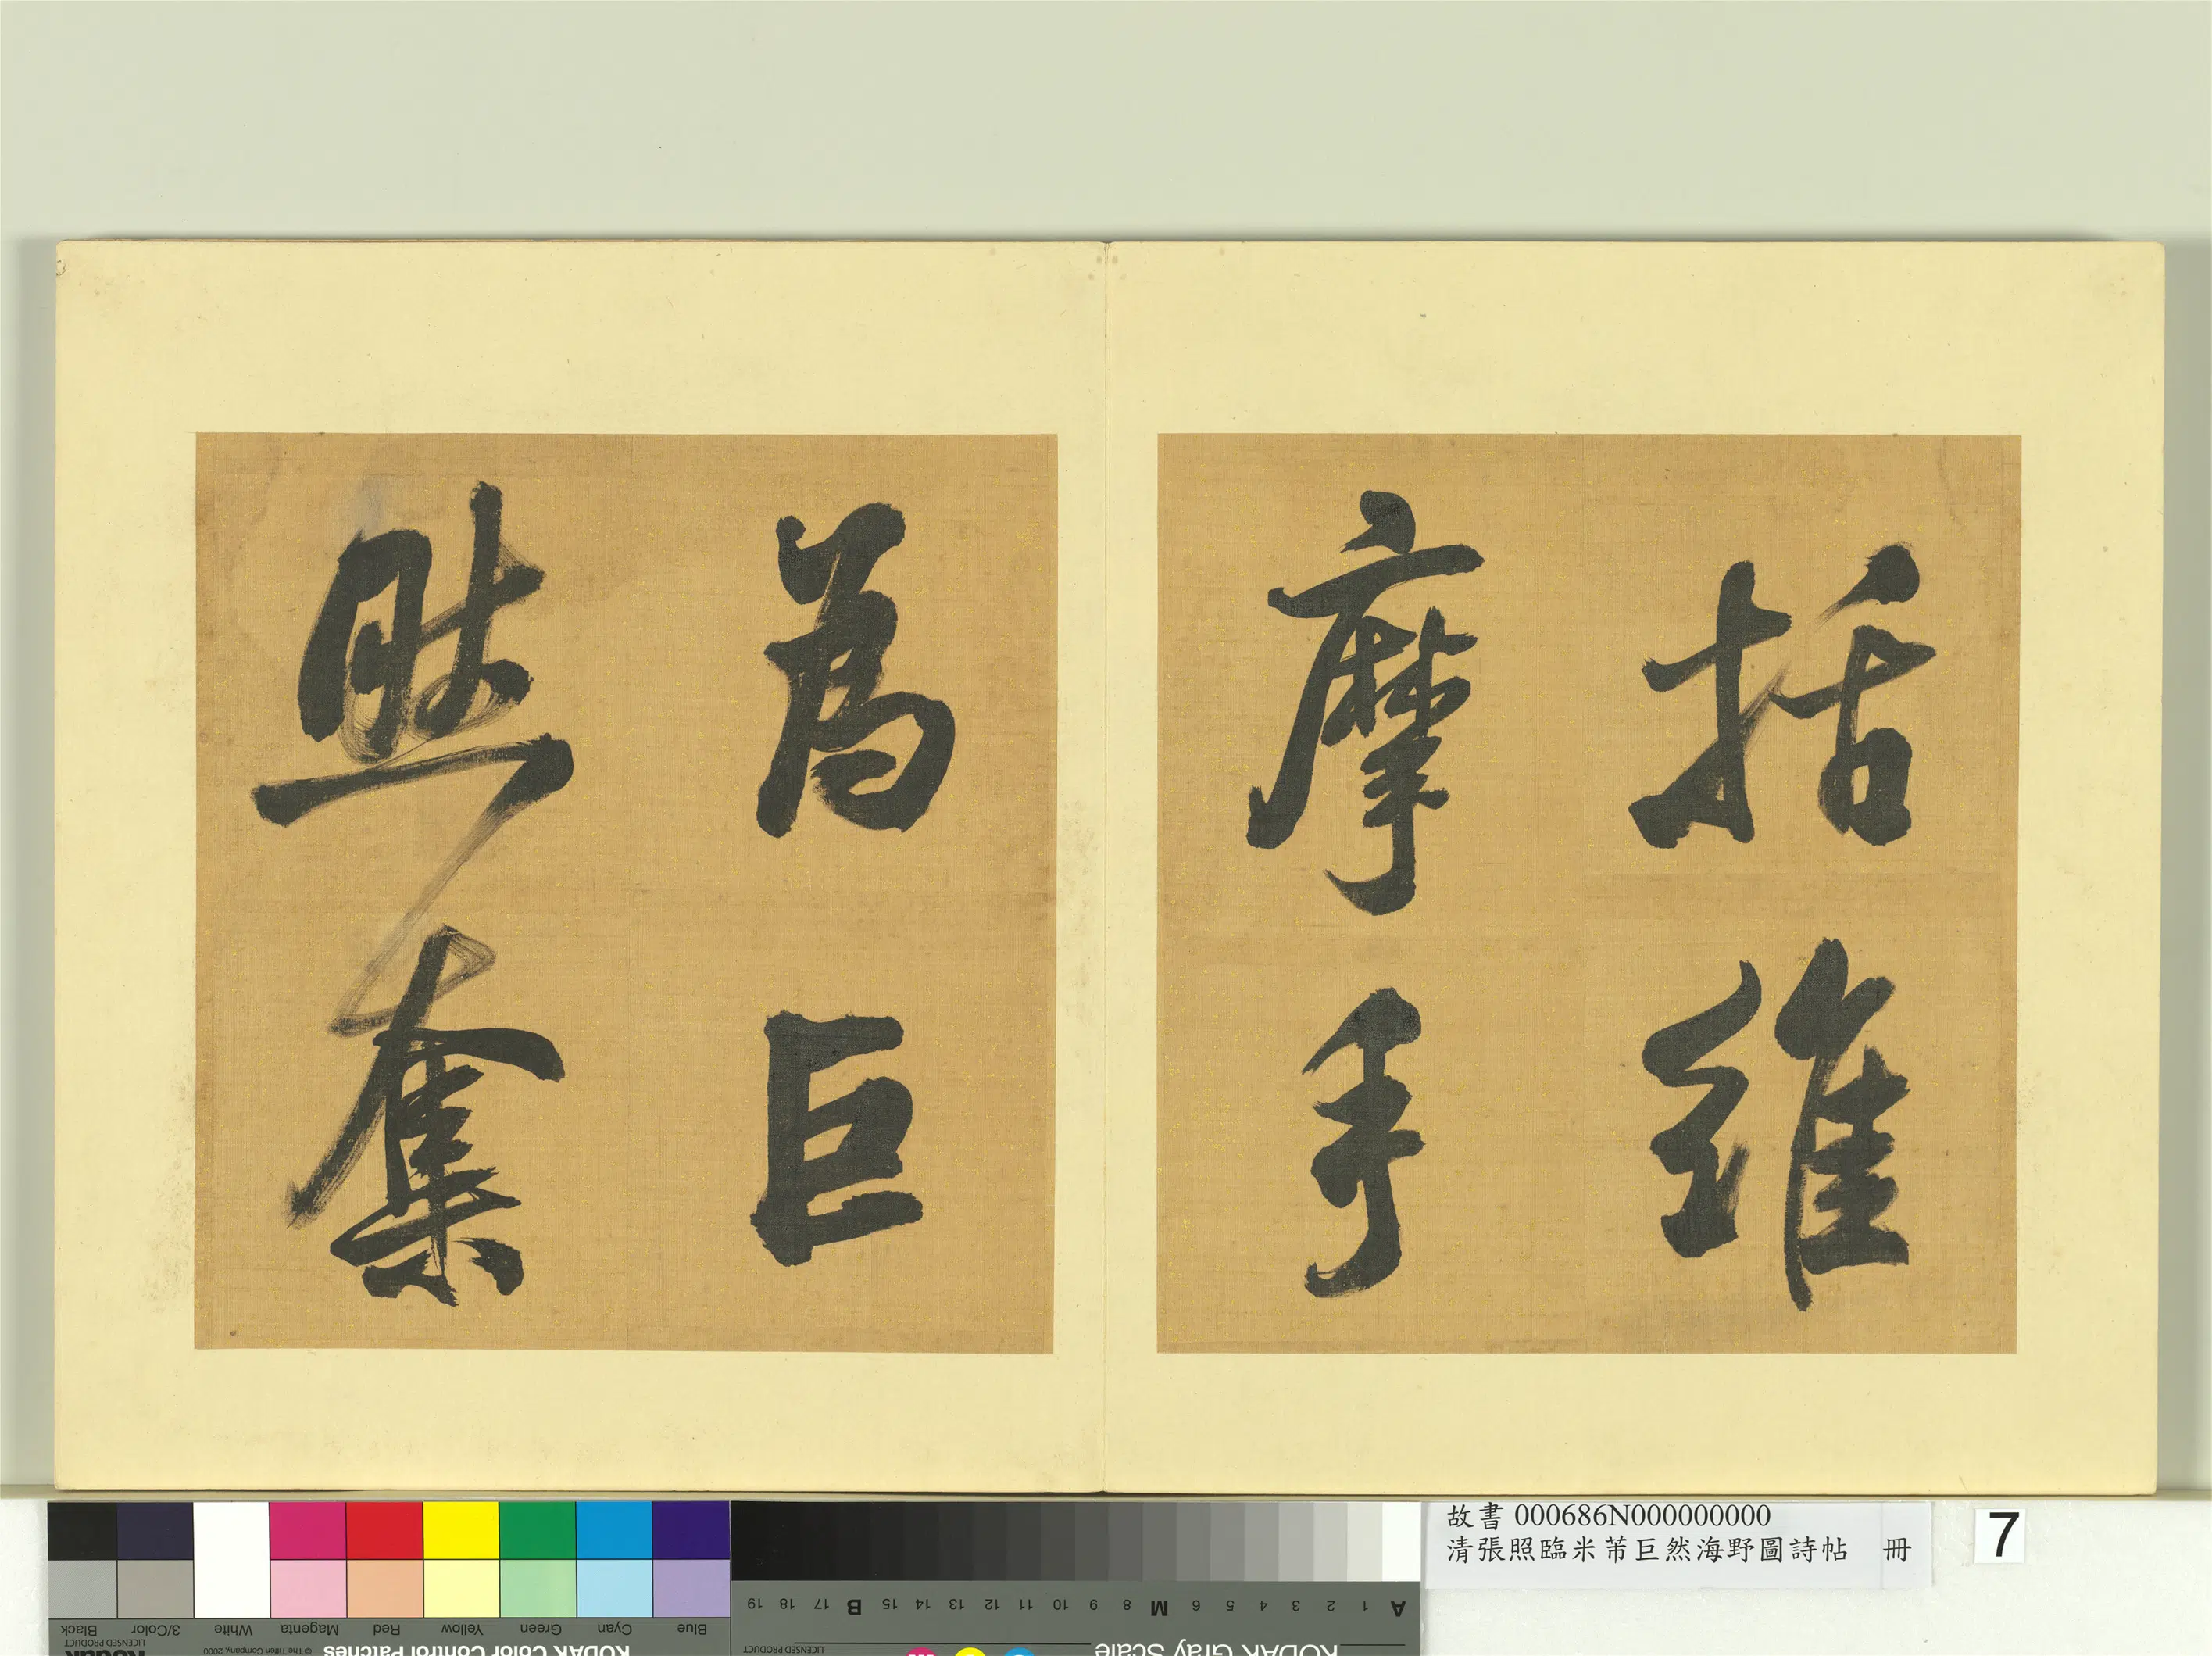 括維
摩手
為巨
然奪
故書 000686N000000000
清張照臨米芾巨然海野圖詩帖 冊
7
Black
3/Color
White
Magenta
Red
Yellow
Green
Cyan
Blue
LICENSED PRODUCT
© The Tiffen Company, 2000
KODAK Color Control Patches
Kodak
A 1 2 3 4 5 6 M 8 9 10 11 12 13 14 15 B 17 18 19
KODAK Gray Scale
LICENSED PRODUCT